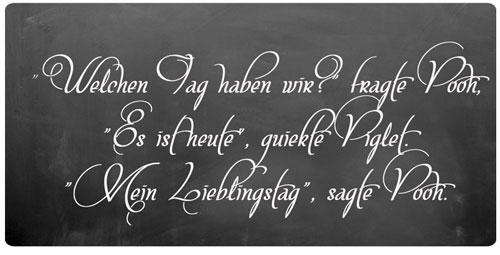 "Welchen Tag haben wir?" fragte Pooh,
"Es ist heute", quiekte Piglet.
"Mein Lieblingstag", sagte Pooh.